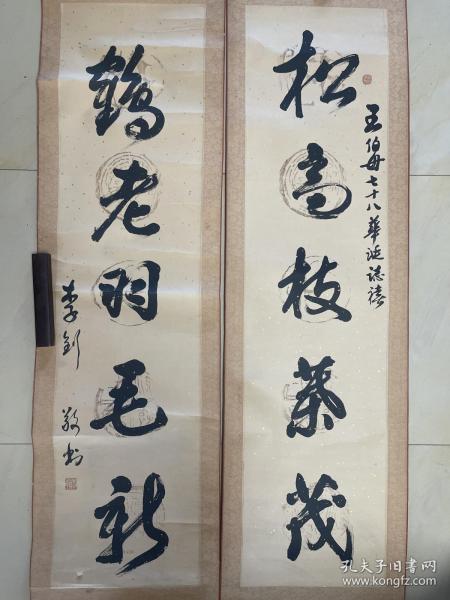 松高枝葉茂
王伯母七十八華誕誌禧
鶴老羽毛新
李釗 敬书
孔夫子旧书网
www.kongfz.com